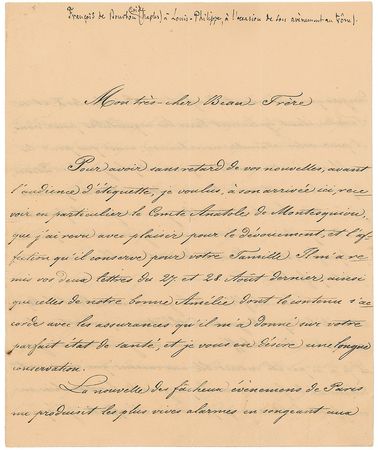 François de Bourbon (Naples) à Louis-Philippe, à l'occasion de son avènement au trône).
Mon très-cher Beau Frère
Pour avoir sans retard de vos nouvelles, avant
l'audience d'étiquette, je voulus, à son arrivée ici, rece
voir en particulier le Comte Anatole de Montesquiou,
que j'ai revu avec plaisir pour le dévouement, et l'af
fection qu'il conserve pour votre Famille. Il m'a re
mis vos deux lettres du 27. et 28. Août dernier, ainsi
que celles de notre bonne Amélie dont le contenu s'ac
corde avec les assurances qu'il m'a donné sur votre
parfait état de santé, et je vous en désire une longue
conservation.
La nouvelle des fâcheux évènemens de Paris
me produisit les plus vives alarmes en songeant aux